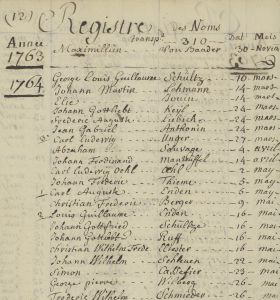 (12) Registre Des Noms
Année transp. 310 Dat Mois
1763 Maximillien Von Baader 30 Novia
1764
George Louis Guillaume Schultz 10 mars
Johann Martin Lehmann 14 mars
Elie Bouin 14 mars
Johann Gottlieb Keyl 24 mars
Frederic Auguste Liebeck 24 mars
Jean Gabriel Anthonin 24 mars
3 Carl Ludewig Unger 27 mars
Abraham Sauvage 2 avril
Johann Ferdinand Manteuffel 14 avril
Carl Ludewig Dohl 2 may
Johann Frederic Thieme 5 may
1 Carl Auguste Linden 6 may
Christian Frederic Berger 9 mai
2 Louis Guillaume Linden 16 mai
Johann Gottfried Schultze 16 mai
Johann Gottlieb Ruff 16 mai
Christian Wilhelm Frede 16 mai
Johann Wilhelm 22 mai
Simon 23 mai
George pierre Wiberg 26 mai
Frederic Wilhelm Schmieder 26 mai